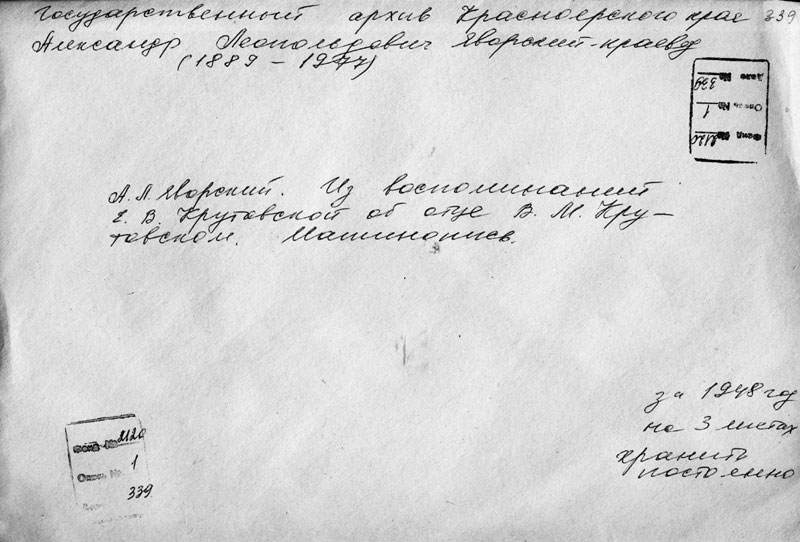 Государственный архив Красноярского края 339
Александр Леопольдович Яворский-краевед
(1889 – 1977)
Дело № 339
Опись № 1
Фонд № 2120
А. Л. Яворский. Из воспоминаний
Е. В. Крутовской об отце В. М. Кру-
товском. Машинопись.
за 1948 год
на 3 листах
хранить
постоянно
Фонд № 2120
Опись № 1
339